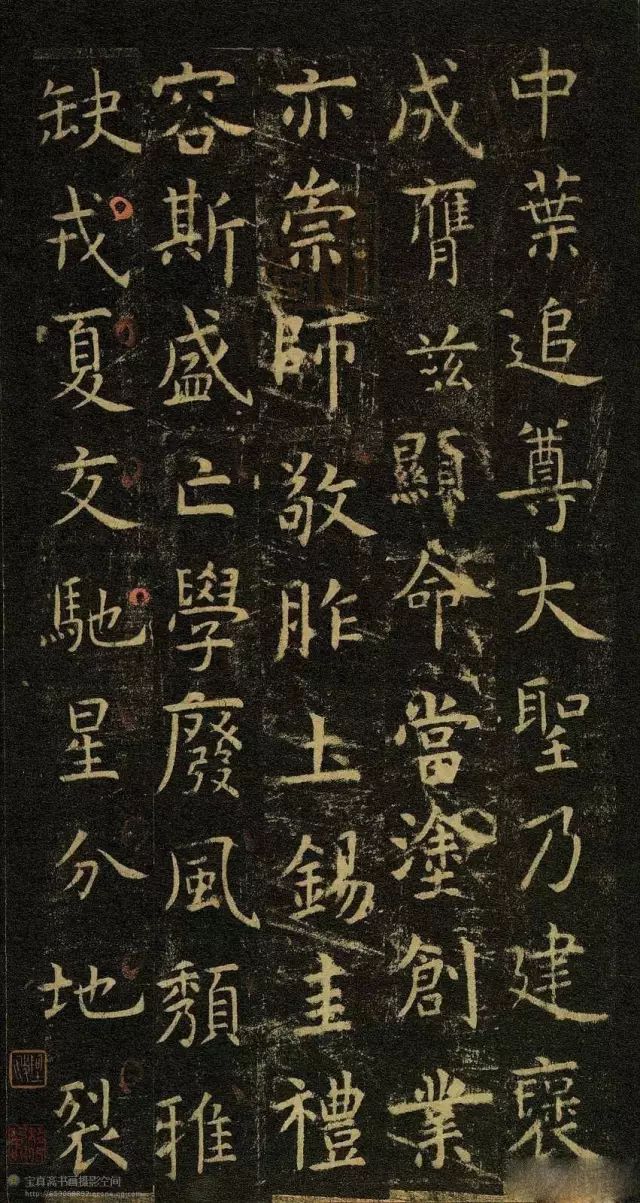 中葉追尊大聖乃建褒
成膺茲顯命當塗創業
亦崇師敬胙土錫圭禮
容斯盛亡學廢風頹雅
缺戎夏交馳星分地裂
宝真斋书画摄影空间